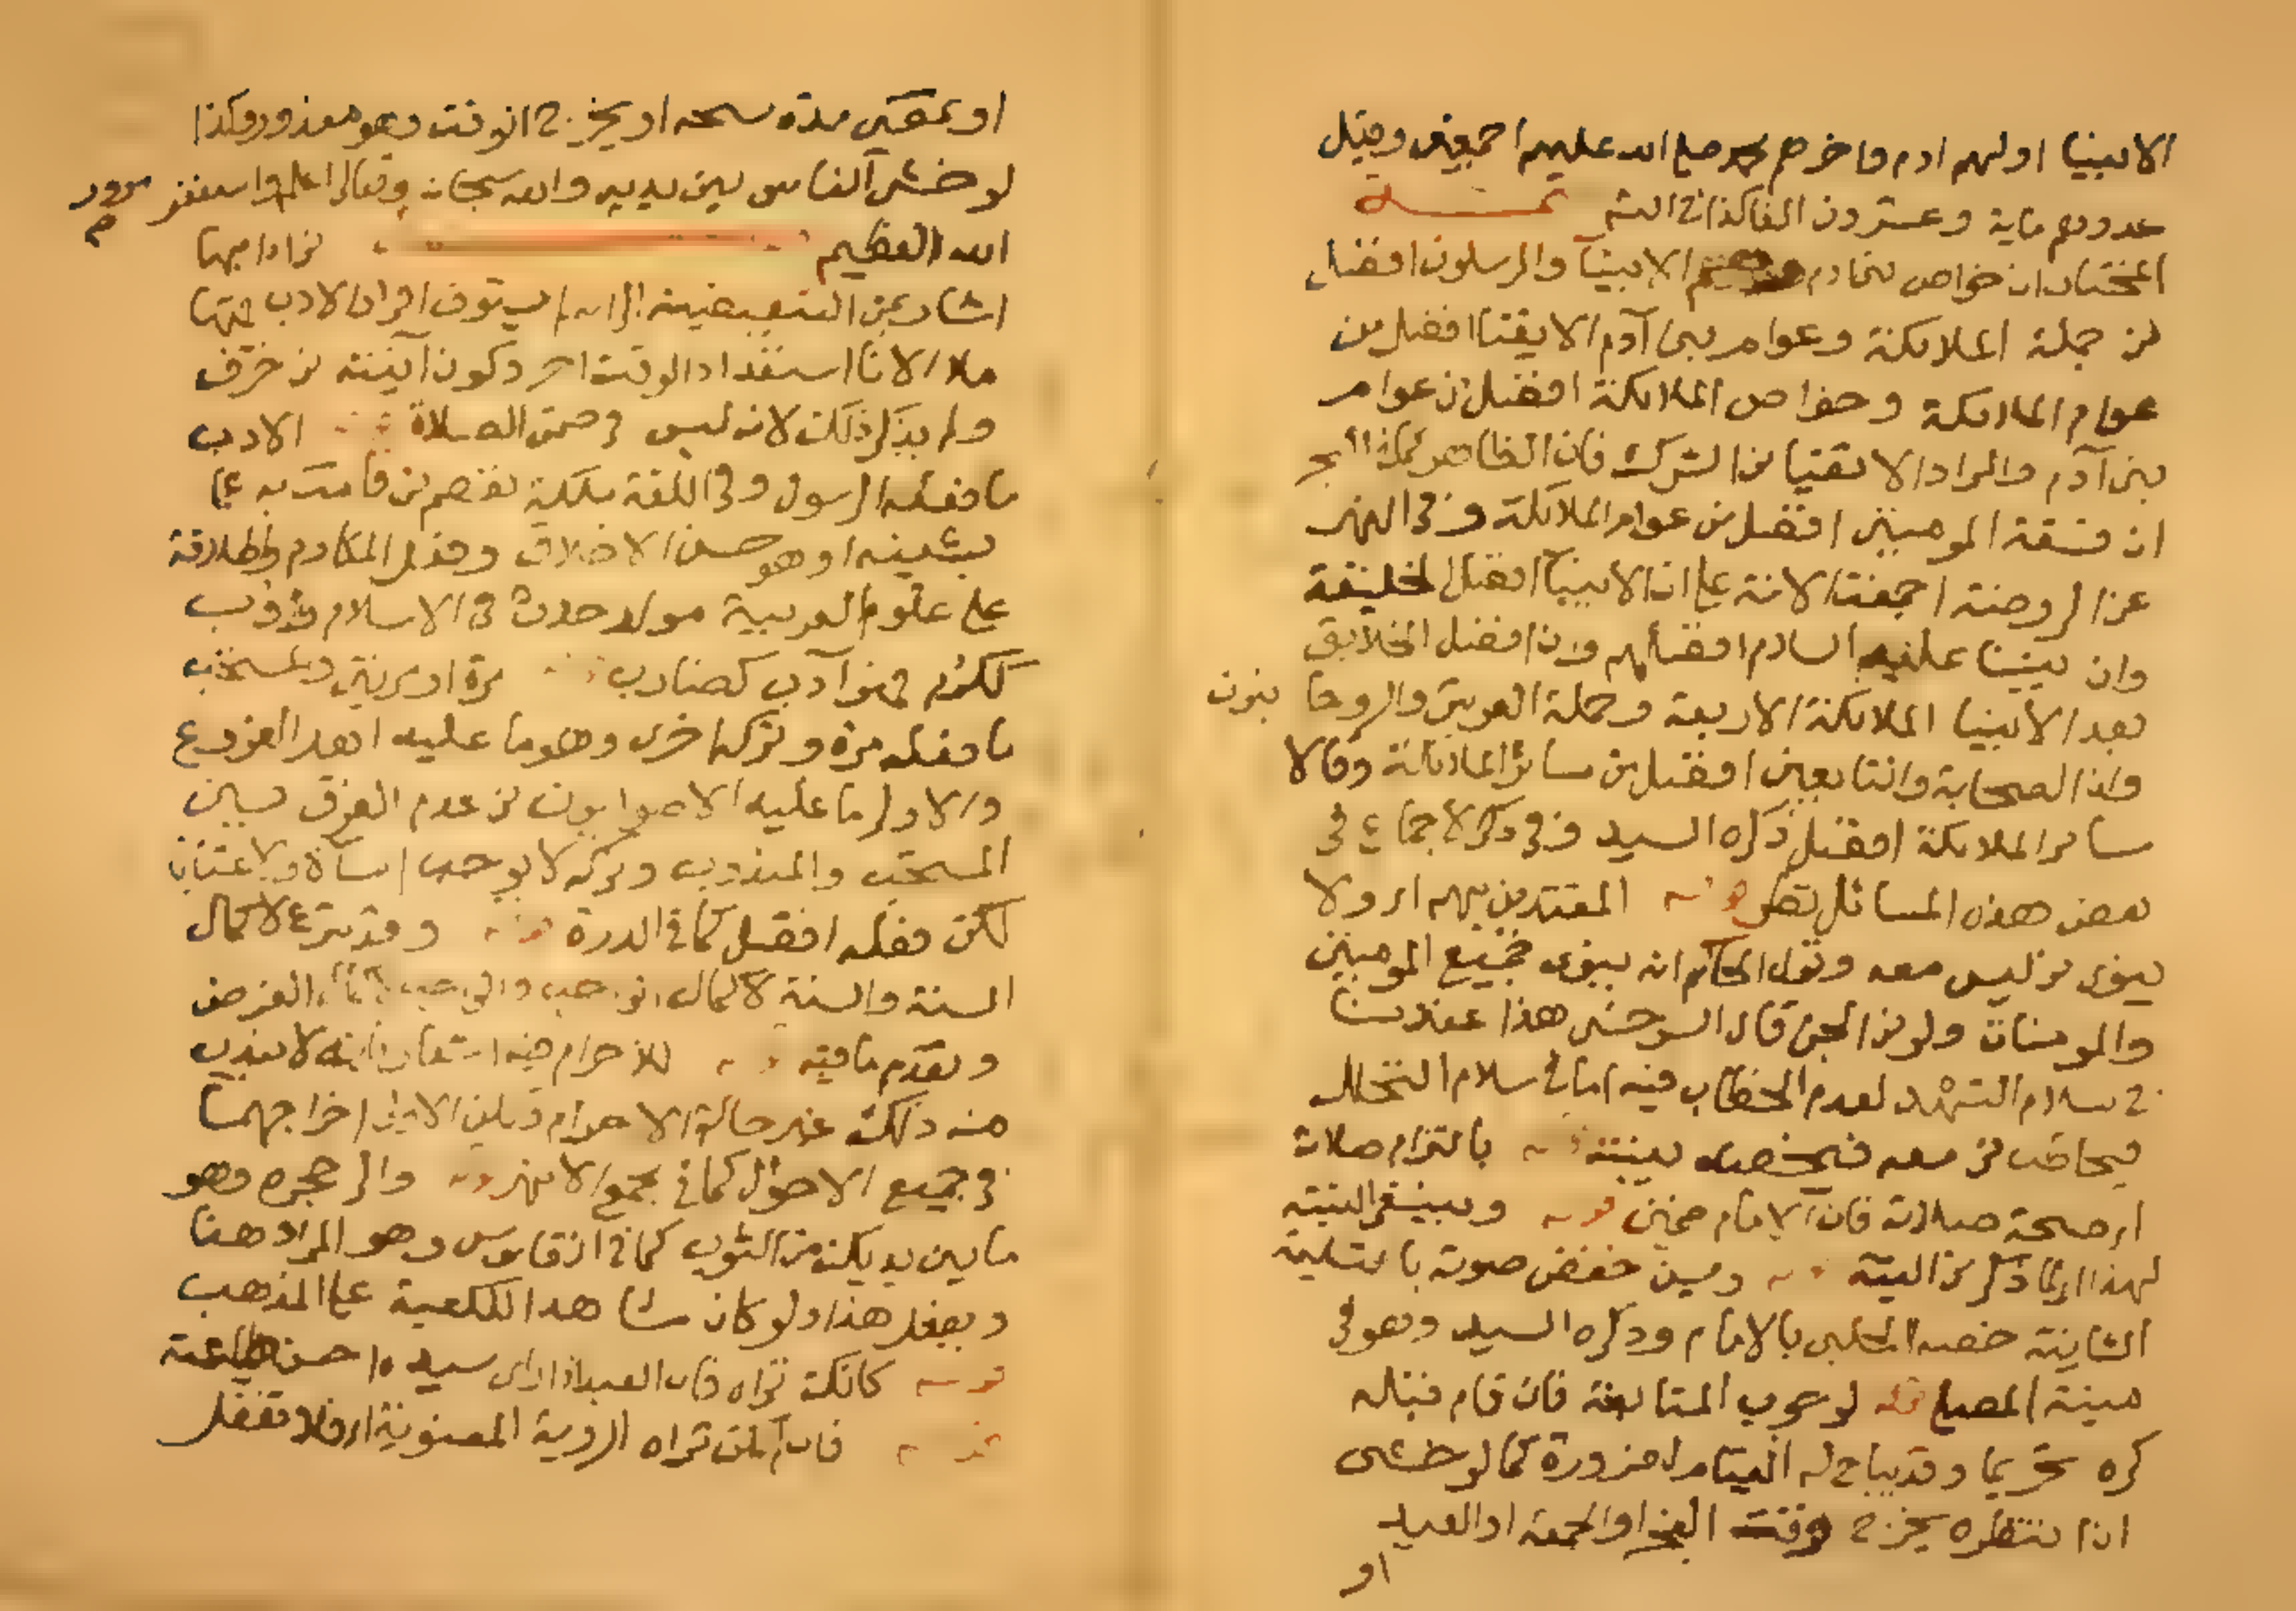 الانبيا اولهم ادم واخرهم محمد صلي الله عليهم اجمعين وقيل
عددهم ماية وعشرون الفا كذا في تتمـــة
المختار ان خواص بني ادم وهم الانبيآ والمرسلون افضل
من جملة الملايكة وعوام بني آدم الاتقيا افضل من
عوام الملايكة وخواص الملايكة افضل من عوام
بني آدم والمراد الاتقيا من الشرك فان الظاهر كما في البحر
ان فسقة المومنين افضل من عوام الملايكة وفي النهر
عن الروضة اجمعت الامة علي ان الانبيآ افضل الخليقة
وان نبينا عليه السلام افضلهم وان افضل الخلايق
بعد الانبيا الملايكة الاربعة وحملة العرش والروحانيون
وان الصحابة والتابعين افضل من سائر الملايكة وقالا
ساير الملايكة افضل ذكره السيد وفي ذكر الاجماع في
بعض هذه المسائل نظر قوله المقتدين بهم اي ولا
ينوي من ليس معه وقول الحاكم انه ينوي جميع المومنين
والمومنات ولو من الجن قال السرخسي هذا عندنا
في سلام التشهد لعدم الخطاب فيه اما في سلام التحلل
فيخاطب من معه فيخصه بنيته قوله بالتزام صلاته
اي صحة صلاته فان الامام ضمين قوله وينبغي النية
لهذا اي لما ذكر من النية قوله وسن خفض صوته بالتسليمة
الثانية خصه الحلبي بالامام وذكره السيد وهو في
منية المصلي قوله لوجوب المتابعة فان قام قبله
كره تحريما وقد يباح له القيام لضرورة كما لو خشي
ان انتظره يخرج وقت الفجر او الجمعة او العيد
او
او تمضي مدة مسحه او يخرج الوقت وهو معذور وكذا
لو خشي الناس بين يديه والله سبحانه وتعالي اعلم واستغفر
الله العظيم من ادابها
اشار بمن التبعيضية الي انه لم يستوف افراد الادب فمنها
ولم يذكر ذلك لانه ليس في ضمن الصلاة قوله الادب
ما فعله الرسول وفي اللغة ملكة تعصم من قامت به عما
يشينه او هو حسن الاخلاق وفعل المكارم واطلاقه
علي علوم العربية مولد حدث في الاسلام وادب
ككرم فهو آدب كضارب قوله مرة او مرتين والمستحب
ما فعله مرة وتركه اخري وهو ما عليه اهل الفروع
والاولي ما عليه الاصوليون من عدم الفرق بين
المستحب والمندوب وتركه لا يوجب اسآة ولا عتابا
لكن فعله افضل كما في الدرة قوله وقد شرع لاكمال
السنة والسنة لاكمال الواجب والواجب لاكمال الفرض
وتقدم ما فيه قوله للاحرام فيه اشعار بانه لا يندب
منه ذلك غير حالة الاحرام ولكن الاولي اخراجهما
في جميع الاحوال كما في مجمع الانهر قوله والي حجره وهو
ما بين يديك من الثوب كما في القاموس وهو المراد هنا
ويفعل هذا ولو كان مشاهدا للكعبة علي المذهب
قوله كانك تراه فان العبد اذا راي سيده احسن طاعته
قوله فان لم تكن تراه الروية المعنوية اي فلا تغفل